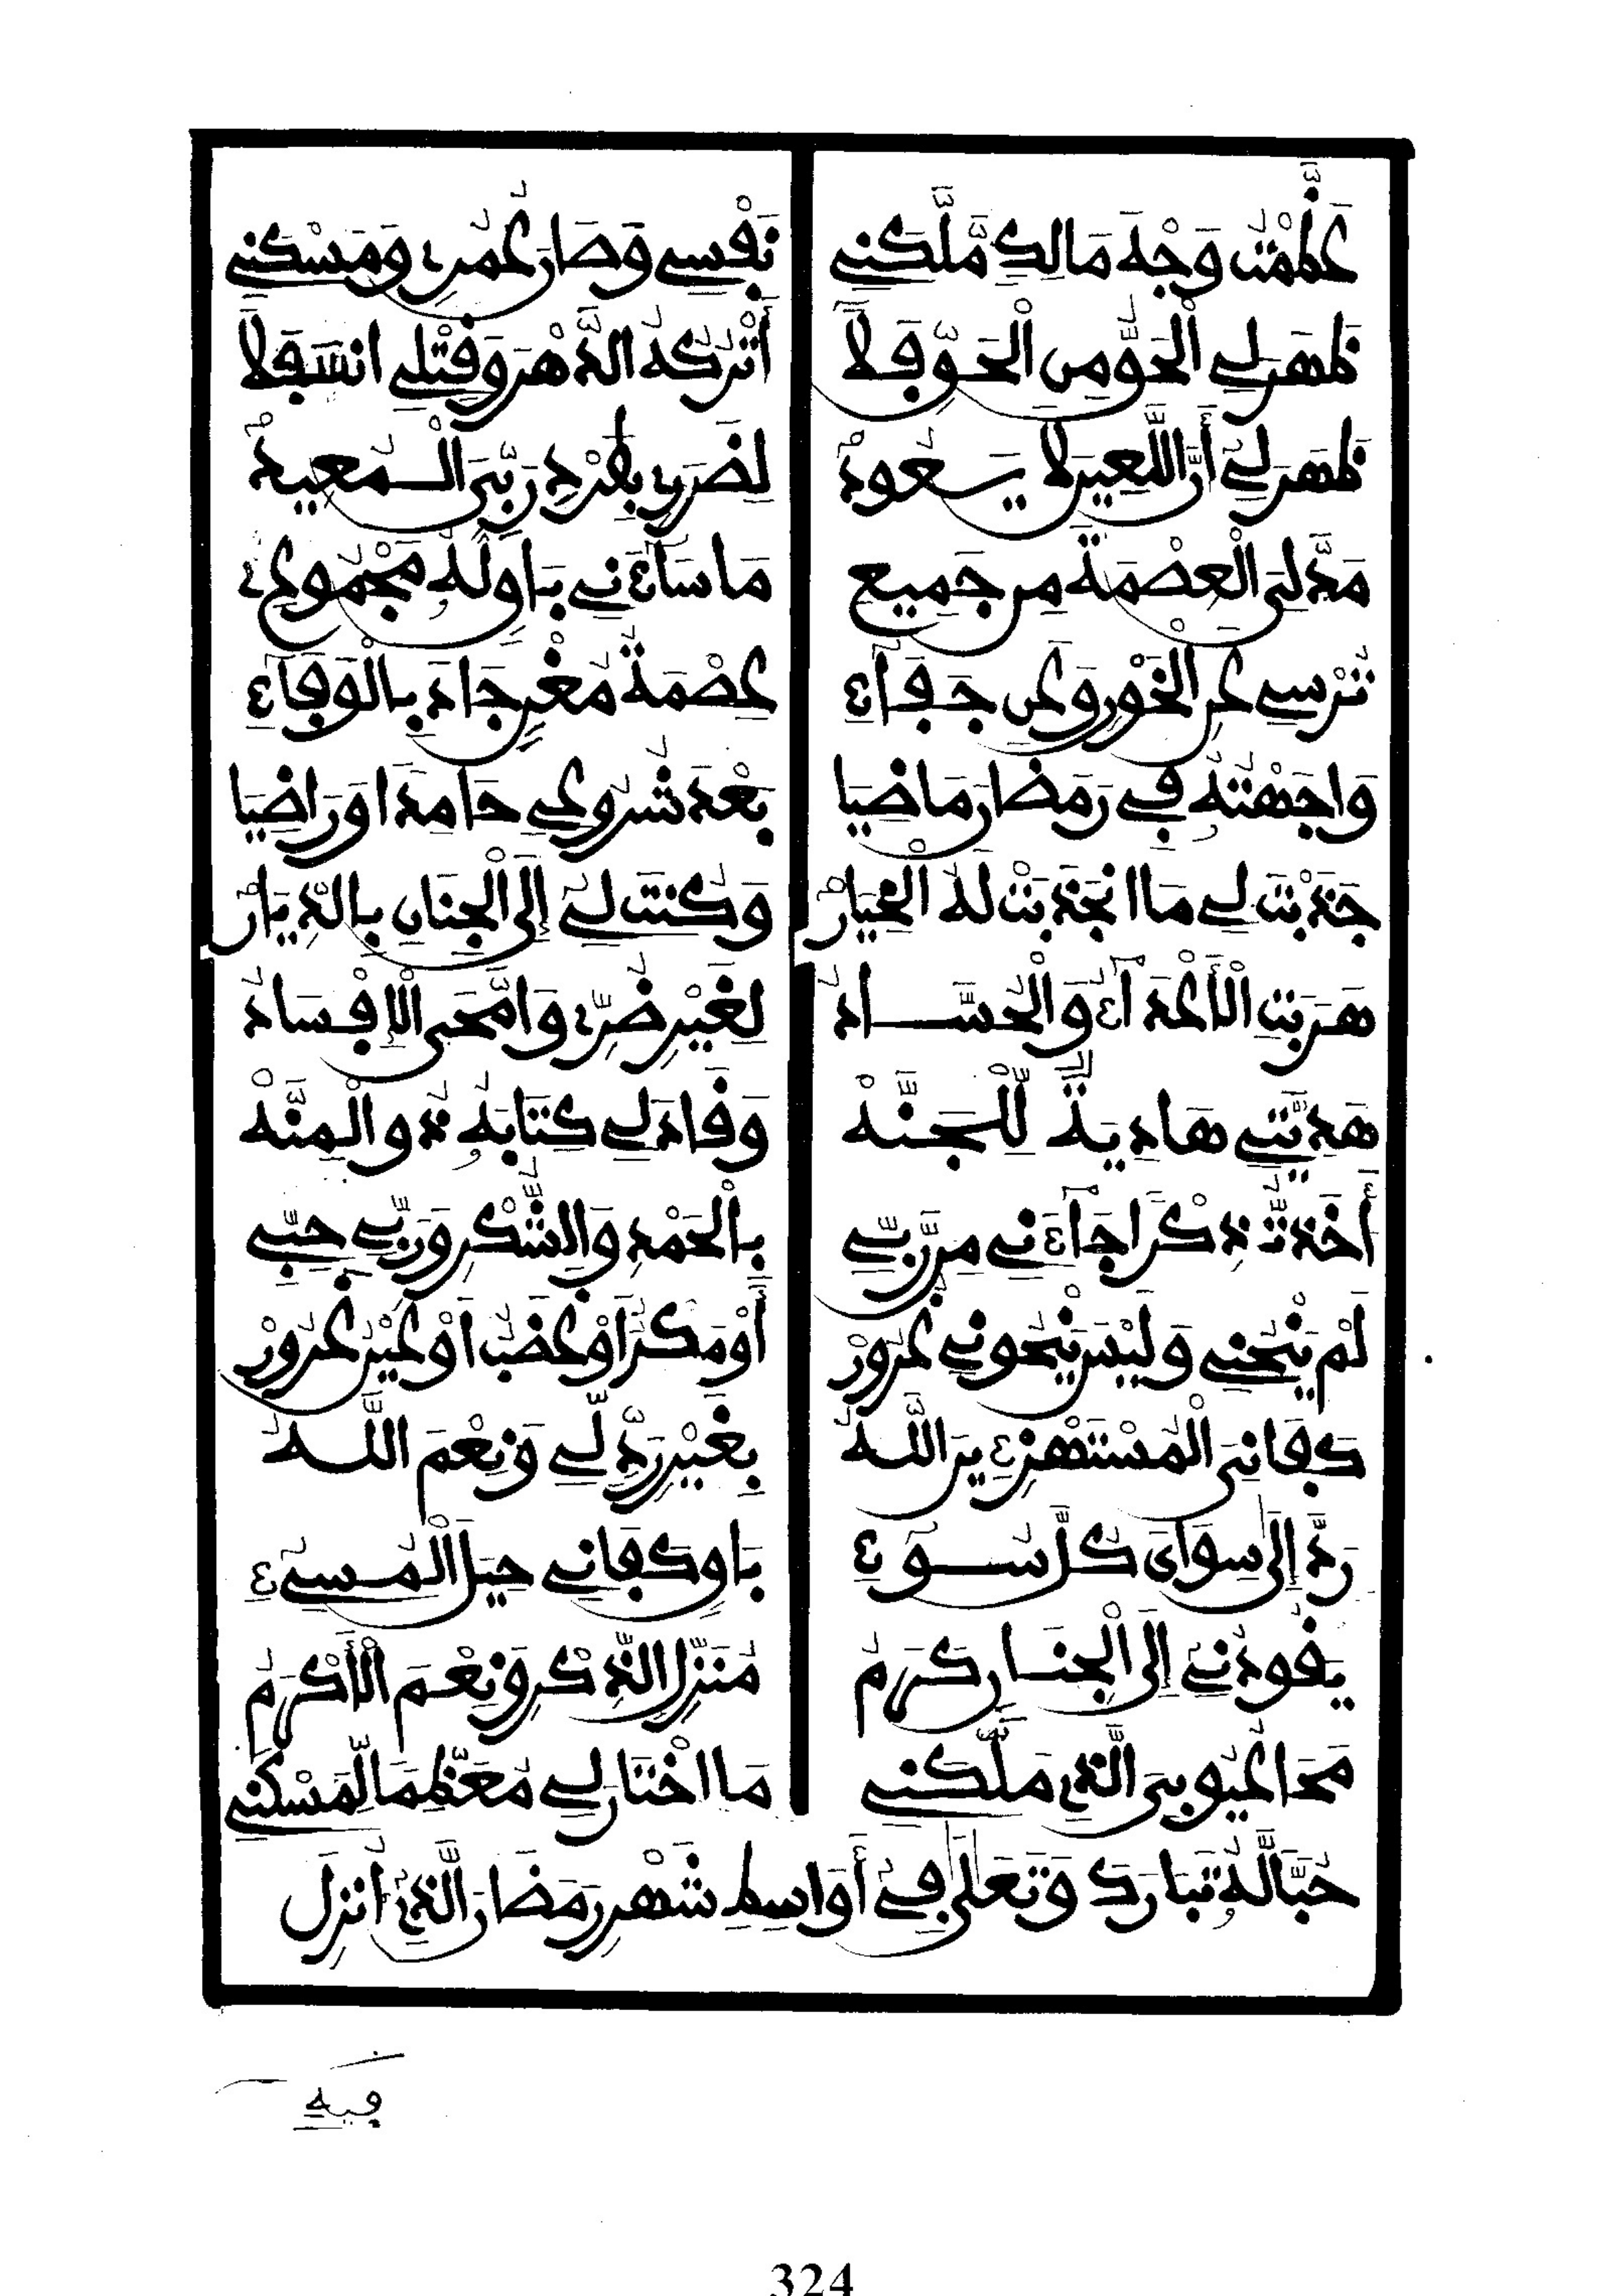 عَظَّمْتُ وَجْهَ مَالِكٍ مَّلَّكَنِي نَفْسِي وَصَارَ عُمُرِي وَمَسْكَنِي
ظَهَرَ لِي الْحَقُّ مِنَ الْحَقِّ فَلَا أَتْرُكُهُ الدَّهْرَ وَقَتْلِي انسَفَلَا
ظَهَرَ لِي أَنَّ اللَّعِينَ لَا يَعُودُ لِضَرَرِي بِطَرْدِ رَبِّيَ الْمُعِيدُ
مَدَّ لِيَ الْعِصْمَةَ مِن جَمِيعِ مَا سَاءَنِي بَاقٍ لَهُ مَجْمُوعِي
تُرْسِي عَنِ الْخَوْرِ وَعَن جَفَاءِ عِصْمَةُ مُغْنٍ جَادَ بِالْوَفَاءِ
وَاجَهْتُهُ فِي رَمَضَانَ مَاضِيَا بَعْدَ شُرُوعِي حَامِدًا وَرَاضِيَا
جَذَبْتَ لِي مَا انجَذَبَتْ لَهُ الْخِيَارْ وَكُنتَ لِي إِلَى الْجِنَانِ بِالدِّيَارْ
هَرَبَتِ الْأَعْدَاءُ وَالْحُسَّادُ لِغَيْرِ ضُرِّي وَامَّحَى الْإِفْسَادُ
هَدِيَّتِي هَادِيَةٌ لِّلْجَنَّهْ وَقَادَ لِي كِتَابَهُ ذُو الْمِنَّهْ
أَخَذْتُ ذِكْرًا جَاءَنِي مِن رَّبِّي بِالْحَمْدِ وَالشُّكْرِ وَرَبِّي حِبِّي
لَمْ يَنْحُنِي وَلَيْسَ يَنْحُونِي غُرُورْ أَوْ مَكْرٌ أَوْ غَضَبٌ أَوْ غَيْرُ غُرُورْ
كَفَانِيَ الْمُسْتَهْزِءِينَ اللَّهُ بِغَيْرِ رَدٍّ لِّي وَنِعْمَ اللَّهُ
رَدَّ إِلَى سِوَايَ كُلَّ سُوءِ بَاقٍ كَفَانِي حِيَلَ الْمُسِيءِ
يَقُودُنِي إِلَى الْجِنَانِ كَرَمُ مُنَزِّلِ الذِّكْرِ وَنِعْمَ الْأَكْرَمُ
مَحَا عُيُوبِيَ الَّذِي مَلَّكَنِي مَا اخْتَارَ لِي مُعَظِّمًا لِّمَسْكَنِي
حُبًّا لَّهُ تَبَارَكَ وَتَعَالَى فِي أَوَاسِطِ شَهْرِ رَمَضَانَ الَّذِي أُنزِلَ
فِيهِ
324